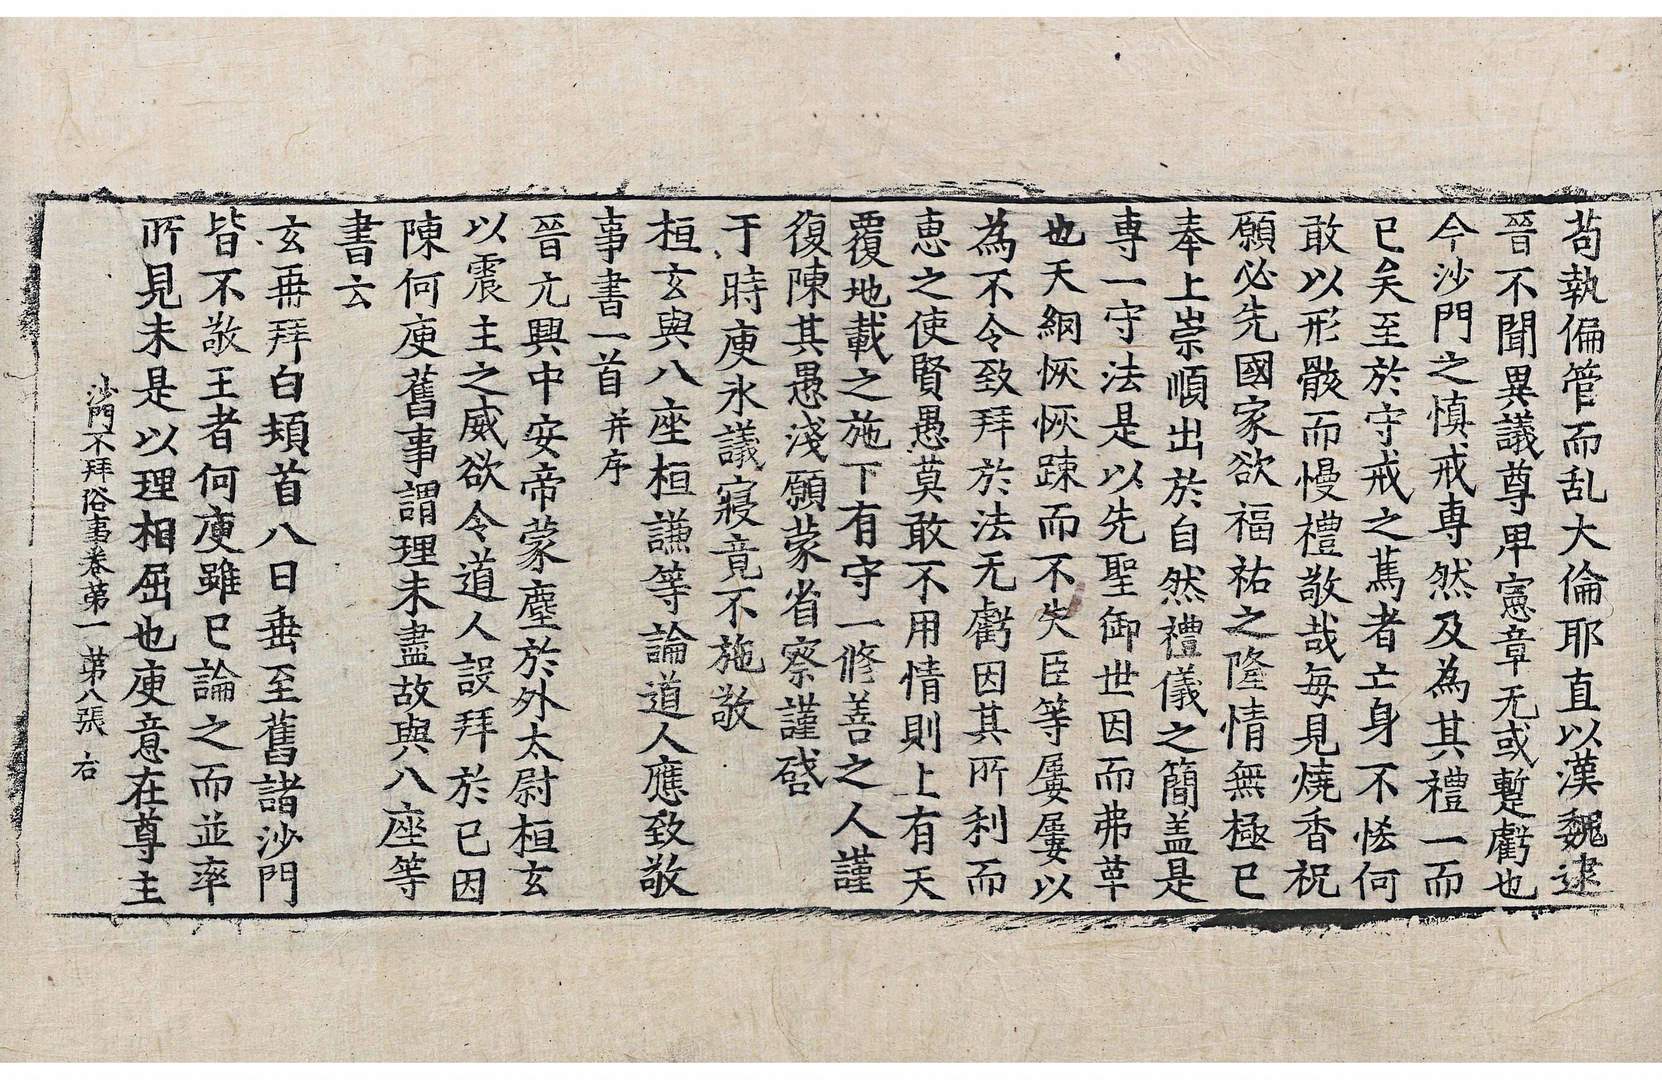 苟執偏管而乱大倫耶直以漢魏逮
晉不聞異議尊卑憲章无或蹔虧也
今沙門之慎戒専然及為其禮一而
已矣至於守戒之篤者亡身不恡何
敢以形骸而慢禮敬哉每見燒香祝
願必先國家欲福祐之隆情無極已
奉上崇順出於自然禮儀之簡盖是
専一守法是以先聖御世因而弗革
也天網恢恢踈而不失臣等屢屢以
為不令致拜於法无虧因其所利而
恵之使賢愚莫敢不用情則上有天
覆地載之施下有守一修善之人謹
復陳其愚淺願蒙省察謹啓
于時庾氷議寢竟不施敬
桓玄與八座桓謙等論道人應致敬
事書一首 并序
晉元興中安帝蒙塵於外太尉桓玄
以震主之威欲令道人設拜於已因
陳何庾舊事謂理未盡故與八座等
書云
玄再拜白頓首八日垂至舊諸沙門
皆不敬王者何庾雖已論之而並率
所見未是以理相屈也庾意在尊主
沙門不拜俗事卷第一 第八張 右